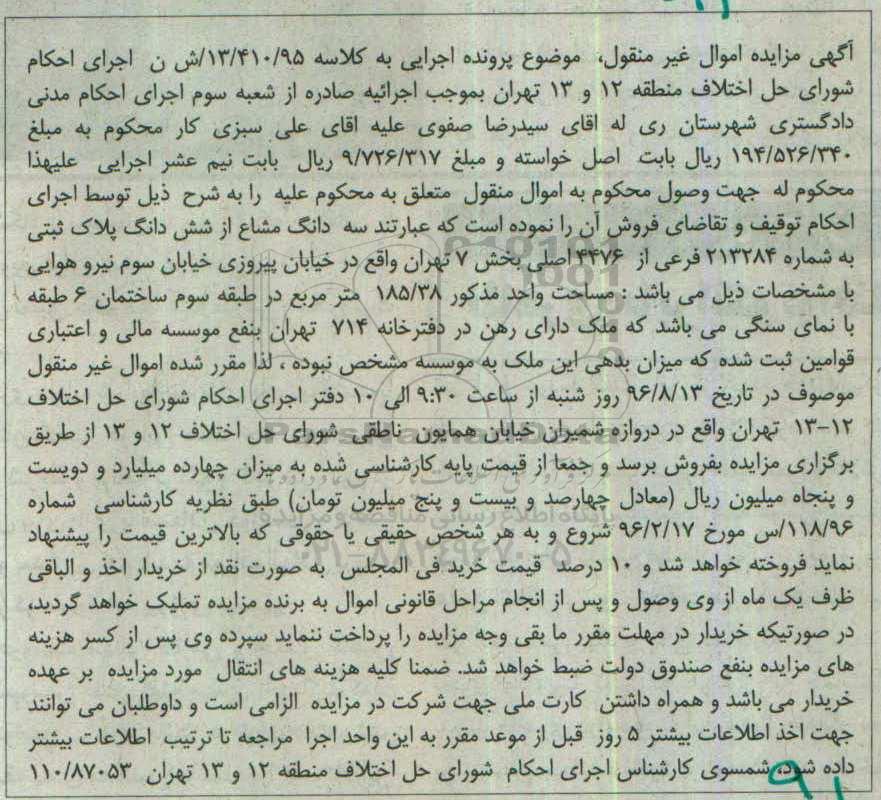 آگهی مزایده اموال غیر منقول، موضوع پرونده اجرایی به کلاسه ۱۳/۴۱۰/۹۵/ش ن اجرای احکام
شورای حل اختلاف منطقه ۱۲ و ۱۳ تهران بموجب اجرائیه صادره از شعبه سوم اجرای احکام مدنی
دادگستری شهرستان ری له اقای سیدرضا صفوی علیه اقای علی سبزی کار محکوم به مبلغ
۱۹۴/۵۲۶/۳۴۰ ریال بابت اصل خواسته و مبلغ ۹/۷۲۶/۳۱۷ ریال بابت نیم عشر اجرایی علیهذا
محکوم له جهت وصول محکوم به اموال منقول متعلق به محکوم علیه را به شرح ذیل توسط اجرای
احکام توقیف و تقاضای فروش آن را نموده است که عبارتند سه دانگ مشاع از شش دانگ پلاک ثبتی
به شماره ۲۱۳۲۸۴ فرعی از ۴۴۷۶ اصلی بخش ۷ تهران واقع در خیابان پیروزی خیابان سوم نیرو هوایی
با مشخصات ذیل می باشد : مساحت واحد مذکور ۱۸۵/۳۸ متر مربع در طبقه سوم ساختمان ۶ طبقه
با نمای سنگی می باشد که ملک دارای رهن در دفترخانه ۷۱۴ تهران بنفع موسسه مالی و اعتباری
قوامین ثبت شده که میزان بدهی این ملک به موسسه مشخص نبوده ، لذا مقرر شده اموال غیر منقول
موصوف در تاریخ ۹۶/۸/۱۳ روز شنبه از ساعت ۹:۳۰ الی ۱۰ دفتر اجرای احکام شورای حل اختلاف
۱۲-۱۳ تهران واقع در دروازه شمیران خیابان همایون ناطقی شورای حل اختلاف ۱۲ و ۱۳ از طریق
برگزاری مزایده بفروش برسد و جمعا از قیمت پایه کارشناسی شده به میزان چهارده میلیارد و دویست
و پنجاه میلیون ریال (معادل چهارصد و بیست و پنج میلیون تومان) طبق نظریه کارشناسی شماره
۱۱۸/۹۶/س مورخ ۹۶/۲/۱۷ شروع و به هر شخص حقیقی یا حقوقی که بالاترین قیمت را پیشنهاد
نماید فروخته خواهد شد و ۱۰ درصد قیمت خرید فی المجلس به صورت نقد از خریدار اخذ و الباقی
ظرف یک ماه از وی وصول و پس از انجام مراحل قانونی اموال به برنده مزایده تملیک خواهد گردید،
در صورتیکه خریدار در مهلت مقرر ما بقی وجه مزایده را پرداخت ننماید سپرده وی پس از کسر هزینه
های مزایده بنفع صندوق دولت ضبط خواهد شد. ضمنا کلیه هزینه های انتقال مورد مزایده بر عهده
خریدار می باشد و همراه داشتن کارت ملی جهت شرکت در مزایده الزامی است و داوطلبان می توانند
جهت اخذ اطلاعات بیشتر ۵ روز قبل از موعد مقرر به این واحد اجرا مراجعه تا ترتیب اطلاعات بیشتر
داده شود، شمسوی کارشناس اجرای احکام شورای حل اختلاف منطقه ۱۲ و ۱۳ تهران ۱۱۰/۸۷۰۵۳